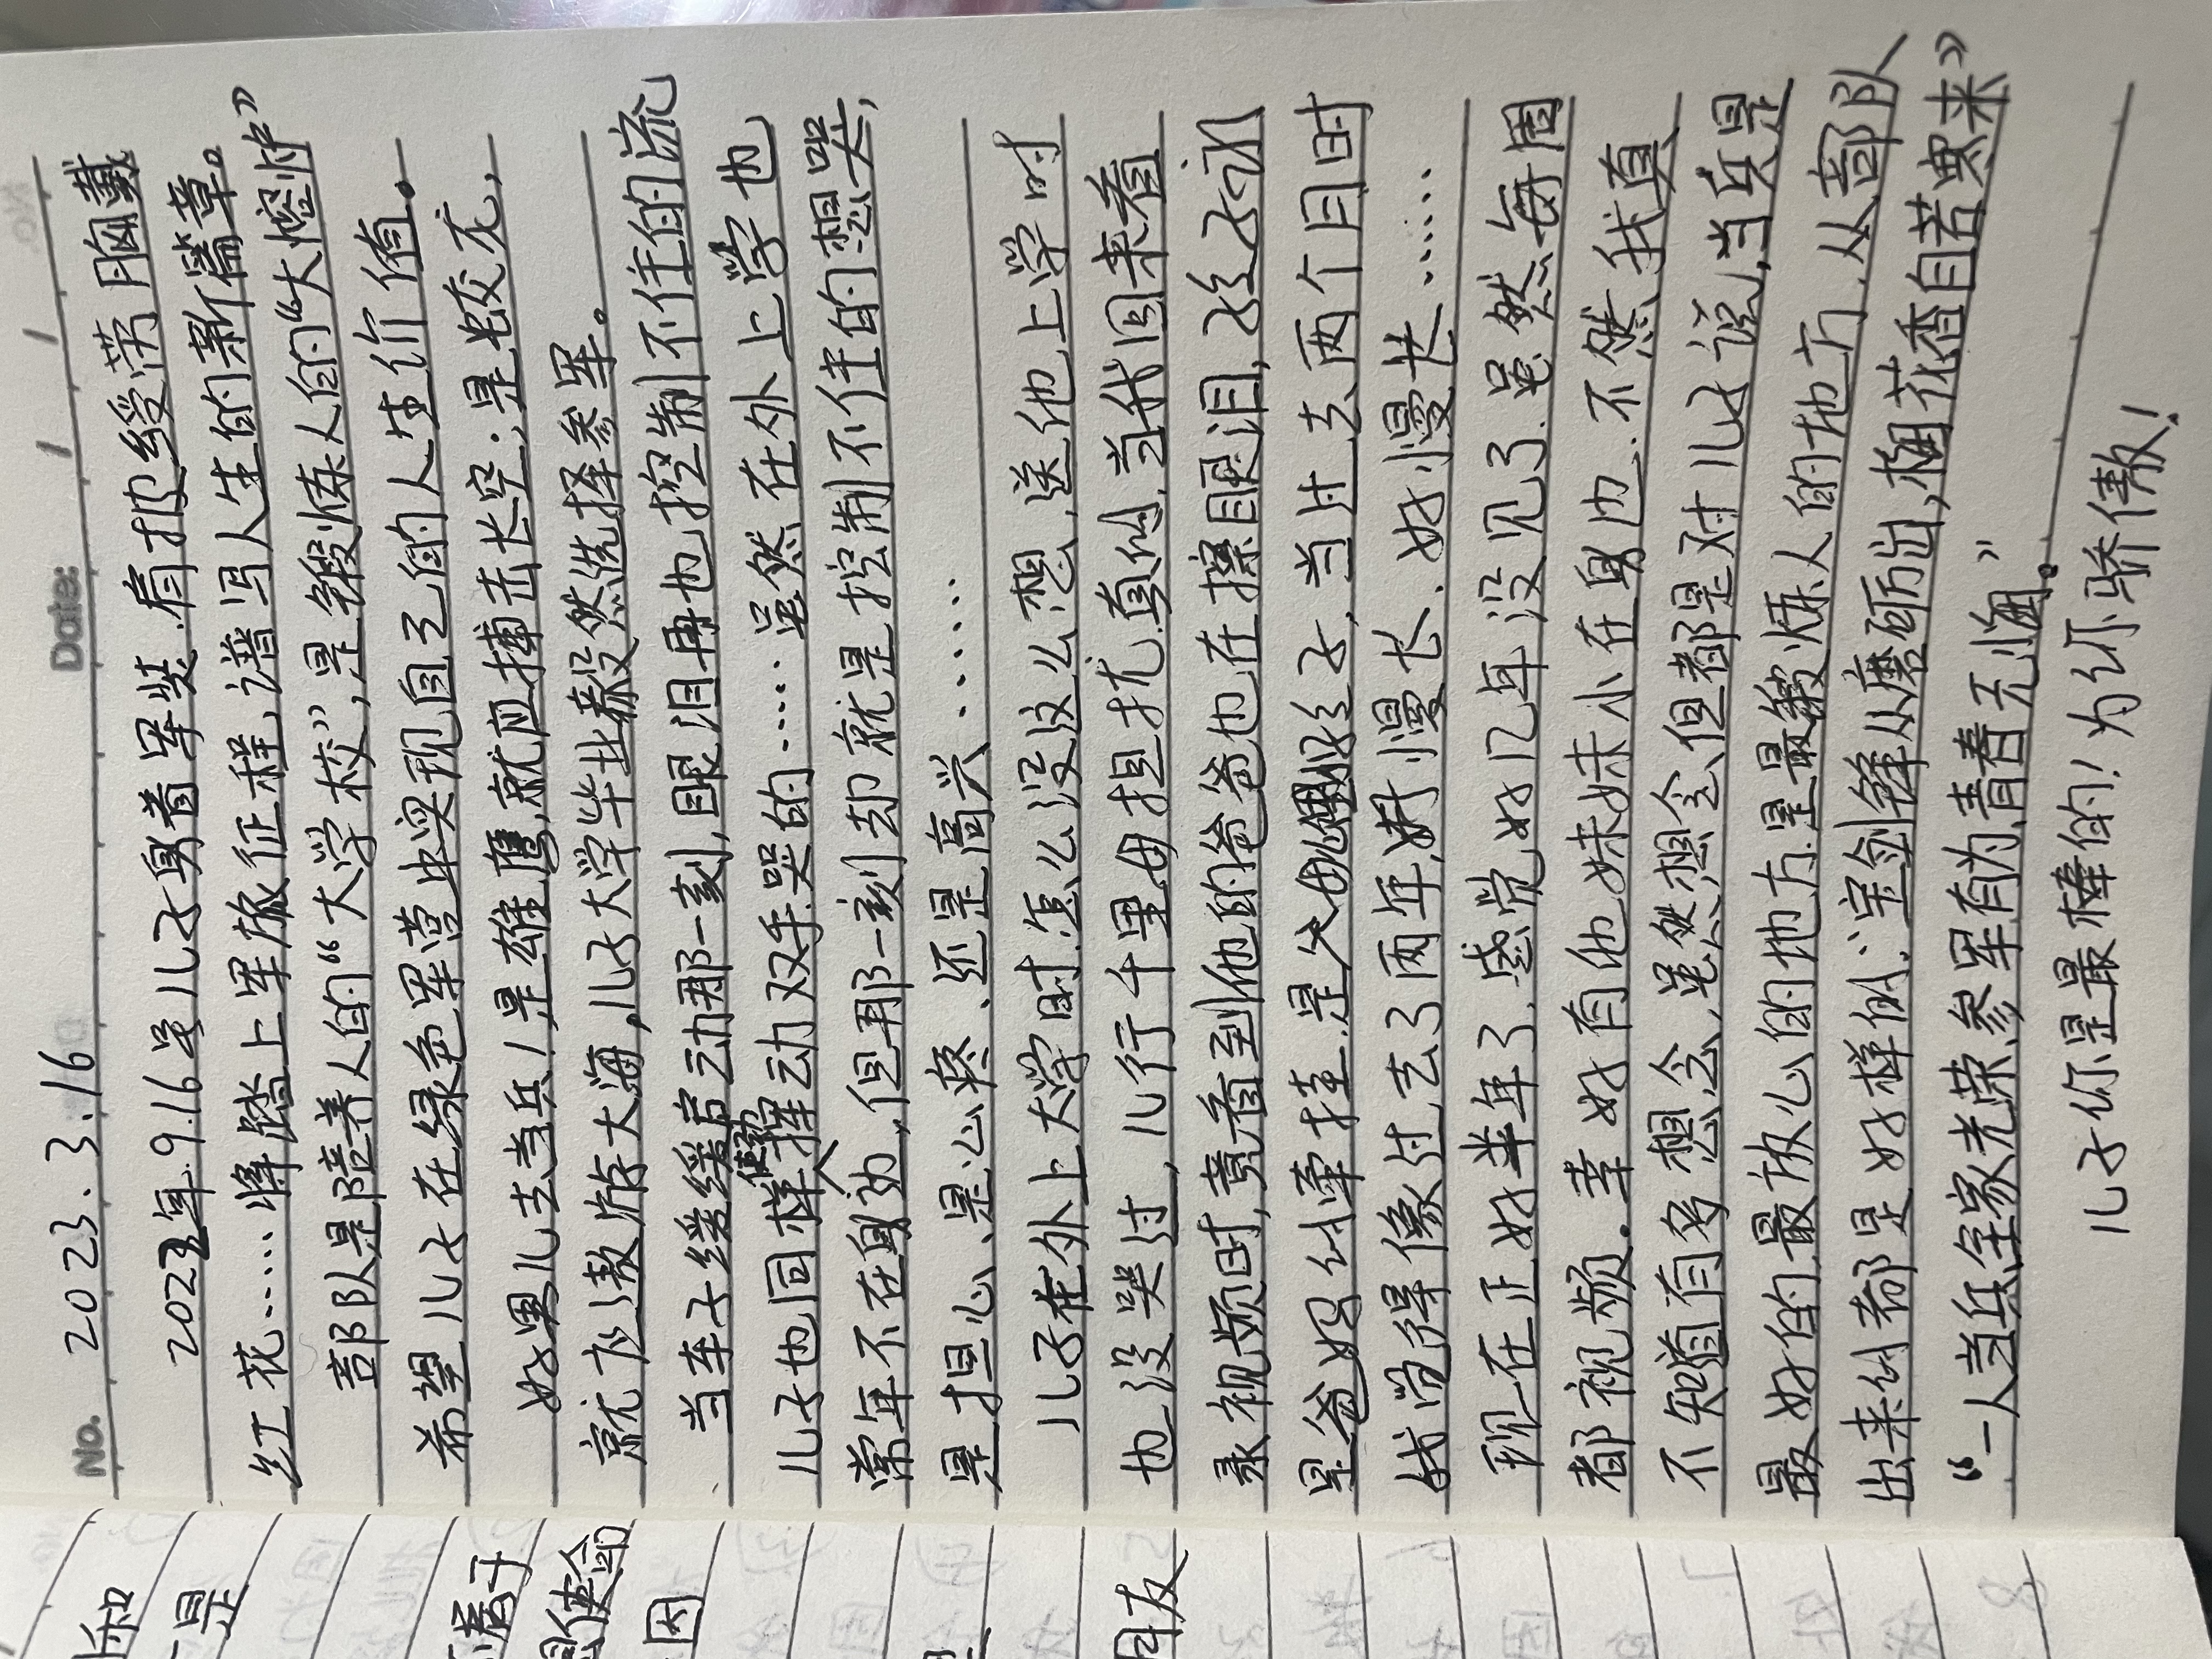 No. 2023.3.16 Date: / /
2022年.9.16号儿子身着军装.肩披绶带胸戴
红花……将踏上军旅征程,谱写人生的新篇章。
部队是陪养人的“大学校”,是锻炼人的“大熔炉”
希望儿子在绿色军营中实现自己的人生价值。
好男儿去当兵!是雄鹰,就应搏击长空;是蛟龙,
就应遨游大海,儿子大学毕业毅然选择参军。
当车子缓缓启动那一刻,眼泪再也控制不住的流
儿子也同样使劲挥动双手.哭的……虽然在外上学也
常年不在身边,但那一刻却就是控制不住的想哭,
是担心、是心疼、还是高兴……
儿子在外上大学时.怎么没这么想,送他上学时
也没哭过,儿行千里母担忧.真的,当我回来看
录视频时,竟看到他的爸爸也在擦眼泪,孩子永
是爸妈的牵挂.是父母的好孩子,当过去两个月时
我觉得像过去了两年,好慢长.好慢长……
现在正好半年了.感觉好几年没见了.虽然每周
都视频.幸好有他妹妹小在身边.不然我真
不知道有多想念,虽然想念.但都是对儿子说,当兵是
最好的.最放心的地方.是最锻炼人的地方.从部队
出来的都是好样的.“宝剑锋从磨砺出,梅花香自苦寒来”
“一人当兵全家光荣.参军有为,青春无悔。”
儿子你是最棒的!为你骄傲!
和
是
着子
因
朋友